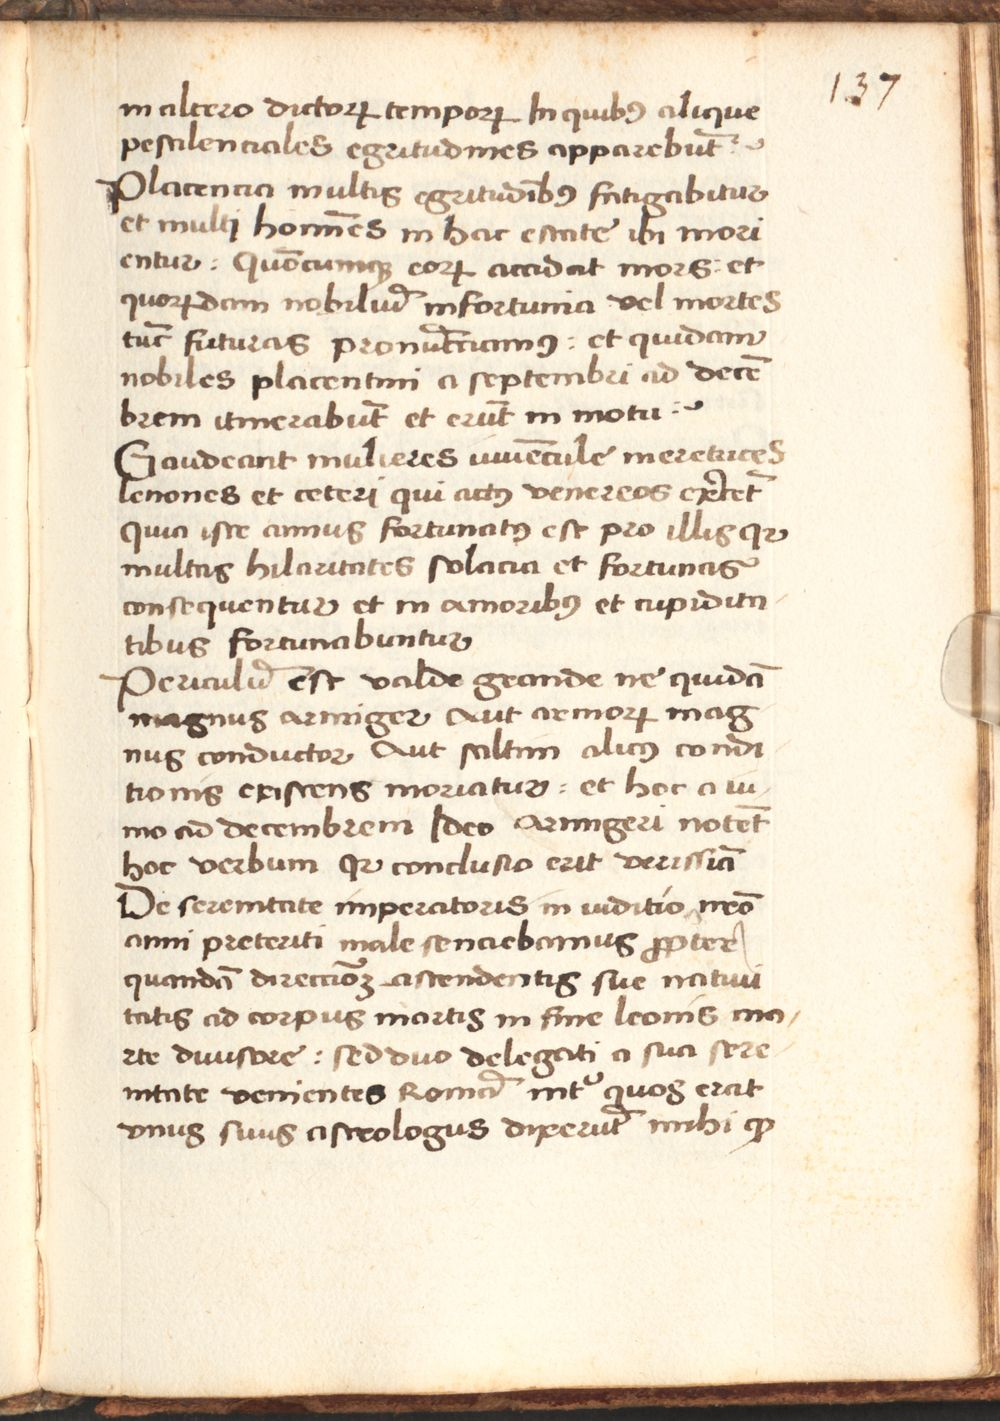 137
in altero dictoꝝ temporꝝ In quibꝰ alique
pestilenciales egritudines apparebūt :~
Placencia multis egritudībꝰ fatigabitur
et multi homīes in hac estate ibi mori
entur : Quōcumqꝫ eorꝝ accidat mors : et
quorꝝdam nobiliū infortunia vel mortes
tūc futuras pronūciamꝰ : et quidam
nobiles placentini a septembri ad decē
brem itinerabūt et erūt in motu :~
Gaudeant mulieres iuuēcule meretrices
lenones et ceteri qui actꝰ venereos exercēt
quia iste annus fortunatꝰ est pro illis qr
multas hilaritates solacia et fortunas
consequentur et in amoribꝰ et cupidita
tibus fortunabuntur
Periculū est valde grande ne quidā
magnus armiger Aut armorꝝ mag
nus conductor Aut saltim alicꝰ condi
tionis existens moriatur : et hoc a iu
nio ad decembrem Ideo Armigeri notēt
hoc verbum qr conclusio erit verissiā
De serenitate imperatoris in iuditio meō
anni preteriti male senciebamus ꝓpter
quandā direcciōꝫ ascendentis sue natiui
tatis ad corpus martis in fine leonis ma
rte diuisore : sed duo delegati a sua sere
nitate venientes Romā int᷑ quos erat
vnus suus astrologus dixerūt mihi ꝙ